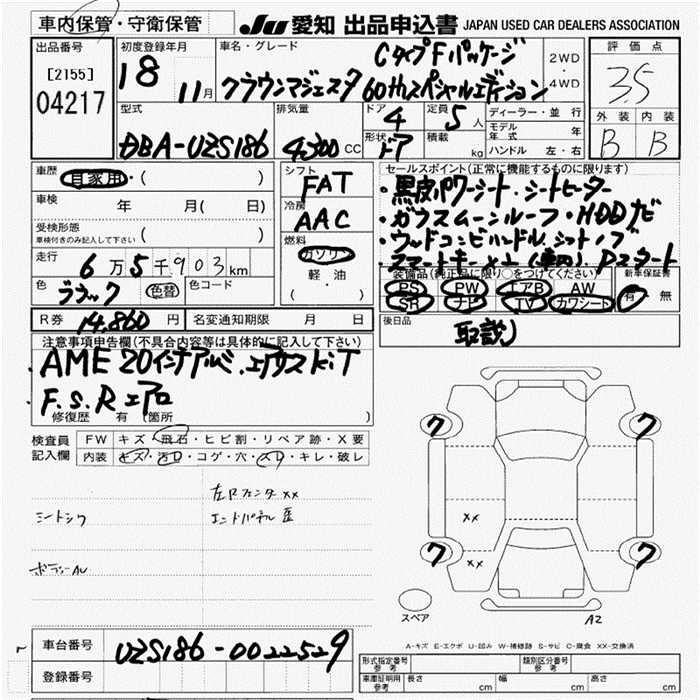 車内保管・守衛保管
JU 愛知 出品申込書 JAPAN USED CAR DEALERS ASSOCIATION
出品番号
[2155]
04217
初度登録年月
18 11月
車名・グレード
CタイプFパッケージ
クラウンマジェスタ 60thスペシャルエディション
2WD
・
4WD
評価点
3.5
外装 内装
B B
型式
DBA-UZS186
排気量
4,300CC
ドア
4
形状
ドア
定員
5人
積載
kg
ディーラー・並行
モデル年式 年
ハンドル 左・右
車歴
自家用・( )
車検
年 月( 日)
受検形態
車検付きのみ記入して下さい ( )
走行
6万5千903km
色
ブラック
色替
色コード
シフト
FAT
冷房
AAC
燃料
ガソリン
軽・油
( )
セールスポイント(正常に機能するものに限ります)
・黒皮パワーシート.シートヒーター
・ガラスムーンルーフ・HDDナビ
・ウッドコンビハンドル.シフトノブ
・スマートキー×2(車内) Pスタート
装備品(純正品に限り○をつけてください)
PS PW エアB AW
SR ナビ TV カワシート
新車保証書
有・無
R券 14,860円
名変通知期限 月 日
後日品
取説
注意事項申告欄(不具合内容等は具体的に記入して下さい)
・AME 20インチアルミ.エアサスKiT
・F.S.Rエアロ
修復歴 有 (箇所 )
検査員記入欄
FW キズ・飛石・ヒビ割・リペア跡・X要
内装 キズ・汚レ・コゲ・穴・スレ・キレ・破レ
左Fフェンダ XX
シートシワ
エンドパネル
ボディーAU
ワ ワ
XX
ワ ワ
XX
スペア
A2
A-キズ E-エクボ U-凹み W-補修跡 S-サビ C-腐食 XX-交換済
車台番号
UZS186-0022529
登録番号
形式指定番号 参考
類別区分番号 参考
車庫証明用 参考
長さ cm 幅 cm 高さ cm